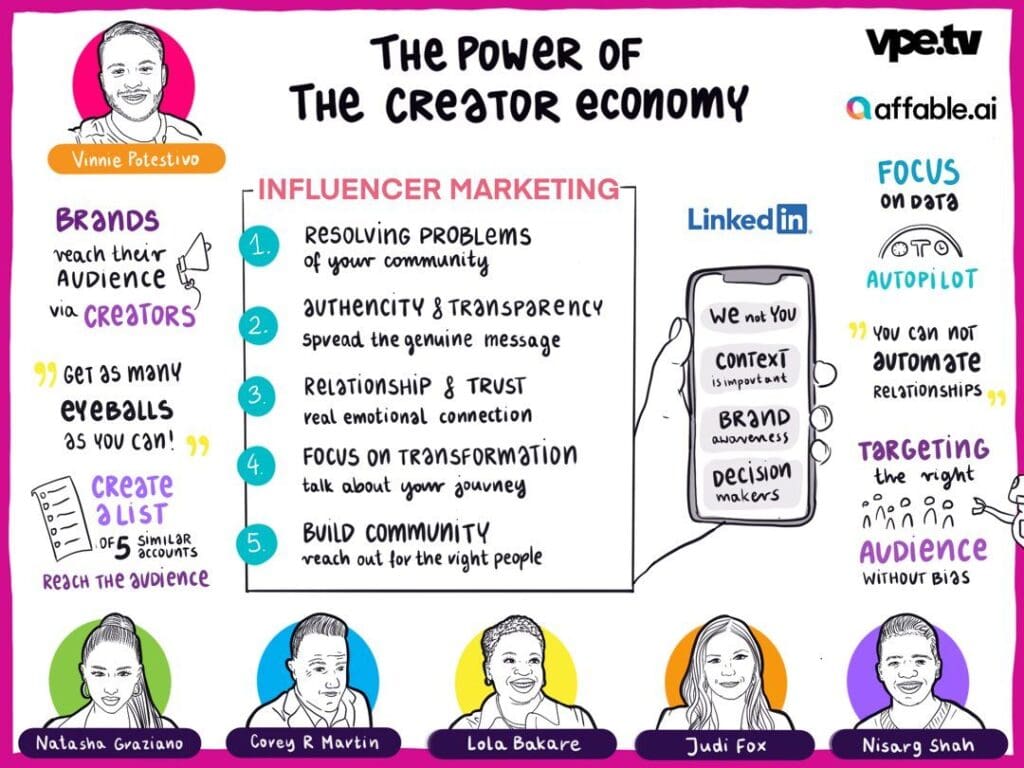 THE POWER OF
THE CREATOR ECONOMY
vpe.tv
affable.ai
Vinnie Potestivo
BRANDS
reach their
AUDIENCE
via CREATORS
"GET AS MANY
EYEBALLS
AS YOU CAN!"
CREATE
A LIST
OF 5 SIMILAR
ACCOUNTS
REACH THE AUDIENCE
INFLUENCER MARKETING
1. RESOLVING PROBLEMS
of your community
2. AUTHENCITY & TRANSPARENCY
spread the genuine message
3. RELATIONSHIP & TRUST
real emotional connection
4. FOCUS ON TRANSFORMATION
talk about your journey
5. BUILD COMMUNITY
reach out for the right people
LinkedIn
WE not YOU
CONTEXT
is important
BRAND
awareness
DECISION
makers
FOCUS
ON DATA
AUTOPILOT
"YOU CAN NOT
AUTOMATE
RELATIONSHIPS"
TARGETING
the right
AUDIENCE
WITHOUT BIAS
Natasha Graziano
Corey R Martin
Lola Bakare
Judi Fox
Nisarg Shah